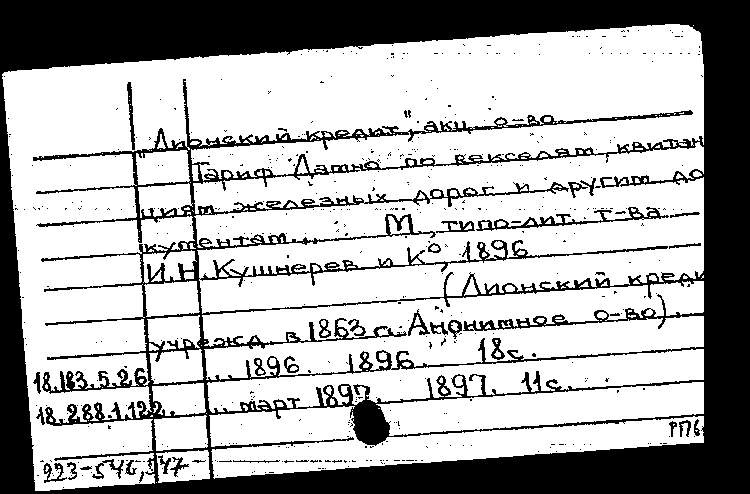 "Лионский кредит", акц. о-во.
Тариф Дамно по векселям, квитан
циям железных дорог и другим до
кументам... М., типо-лит. т-ва
И.Н.Кушнерев и К⁰, 1896
(Лионский креди
учрежд. в 1863 г. Анонимное о-во).
18.183.5.26. ... 1896. 1896. 18с.
18.288.1.122. ... март 1897. 1897. 11с.
223-546,547